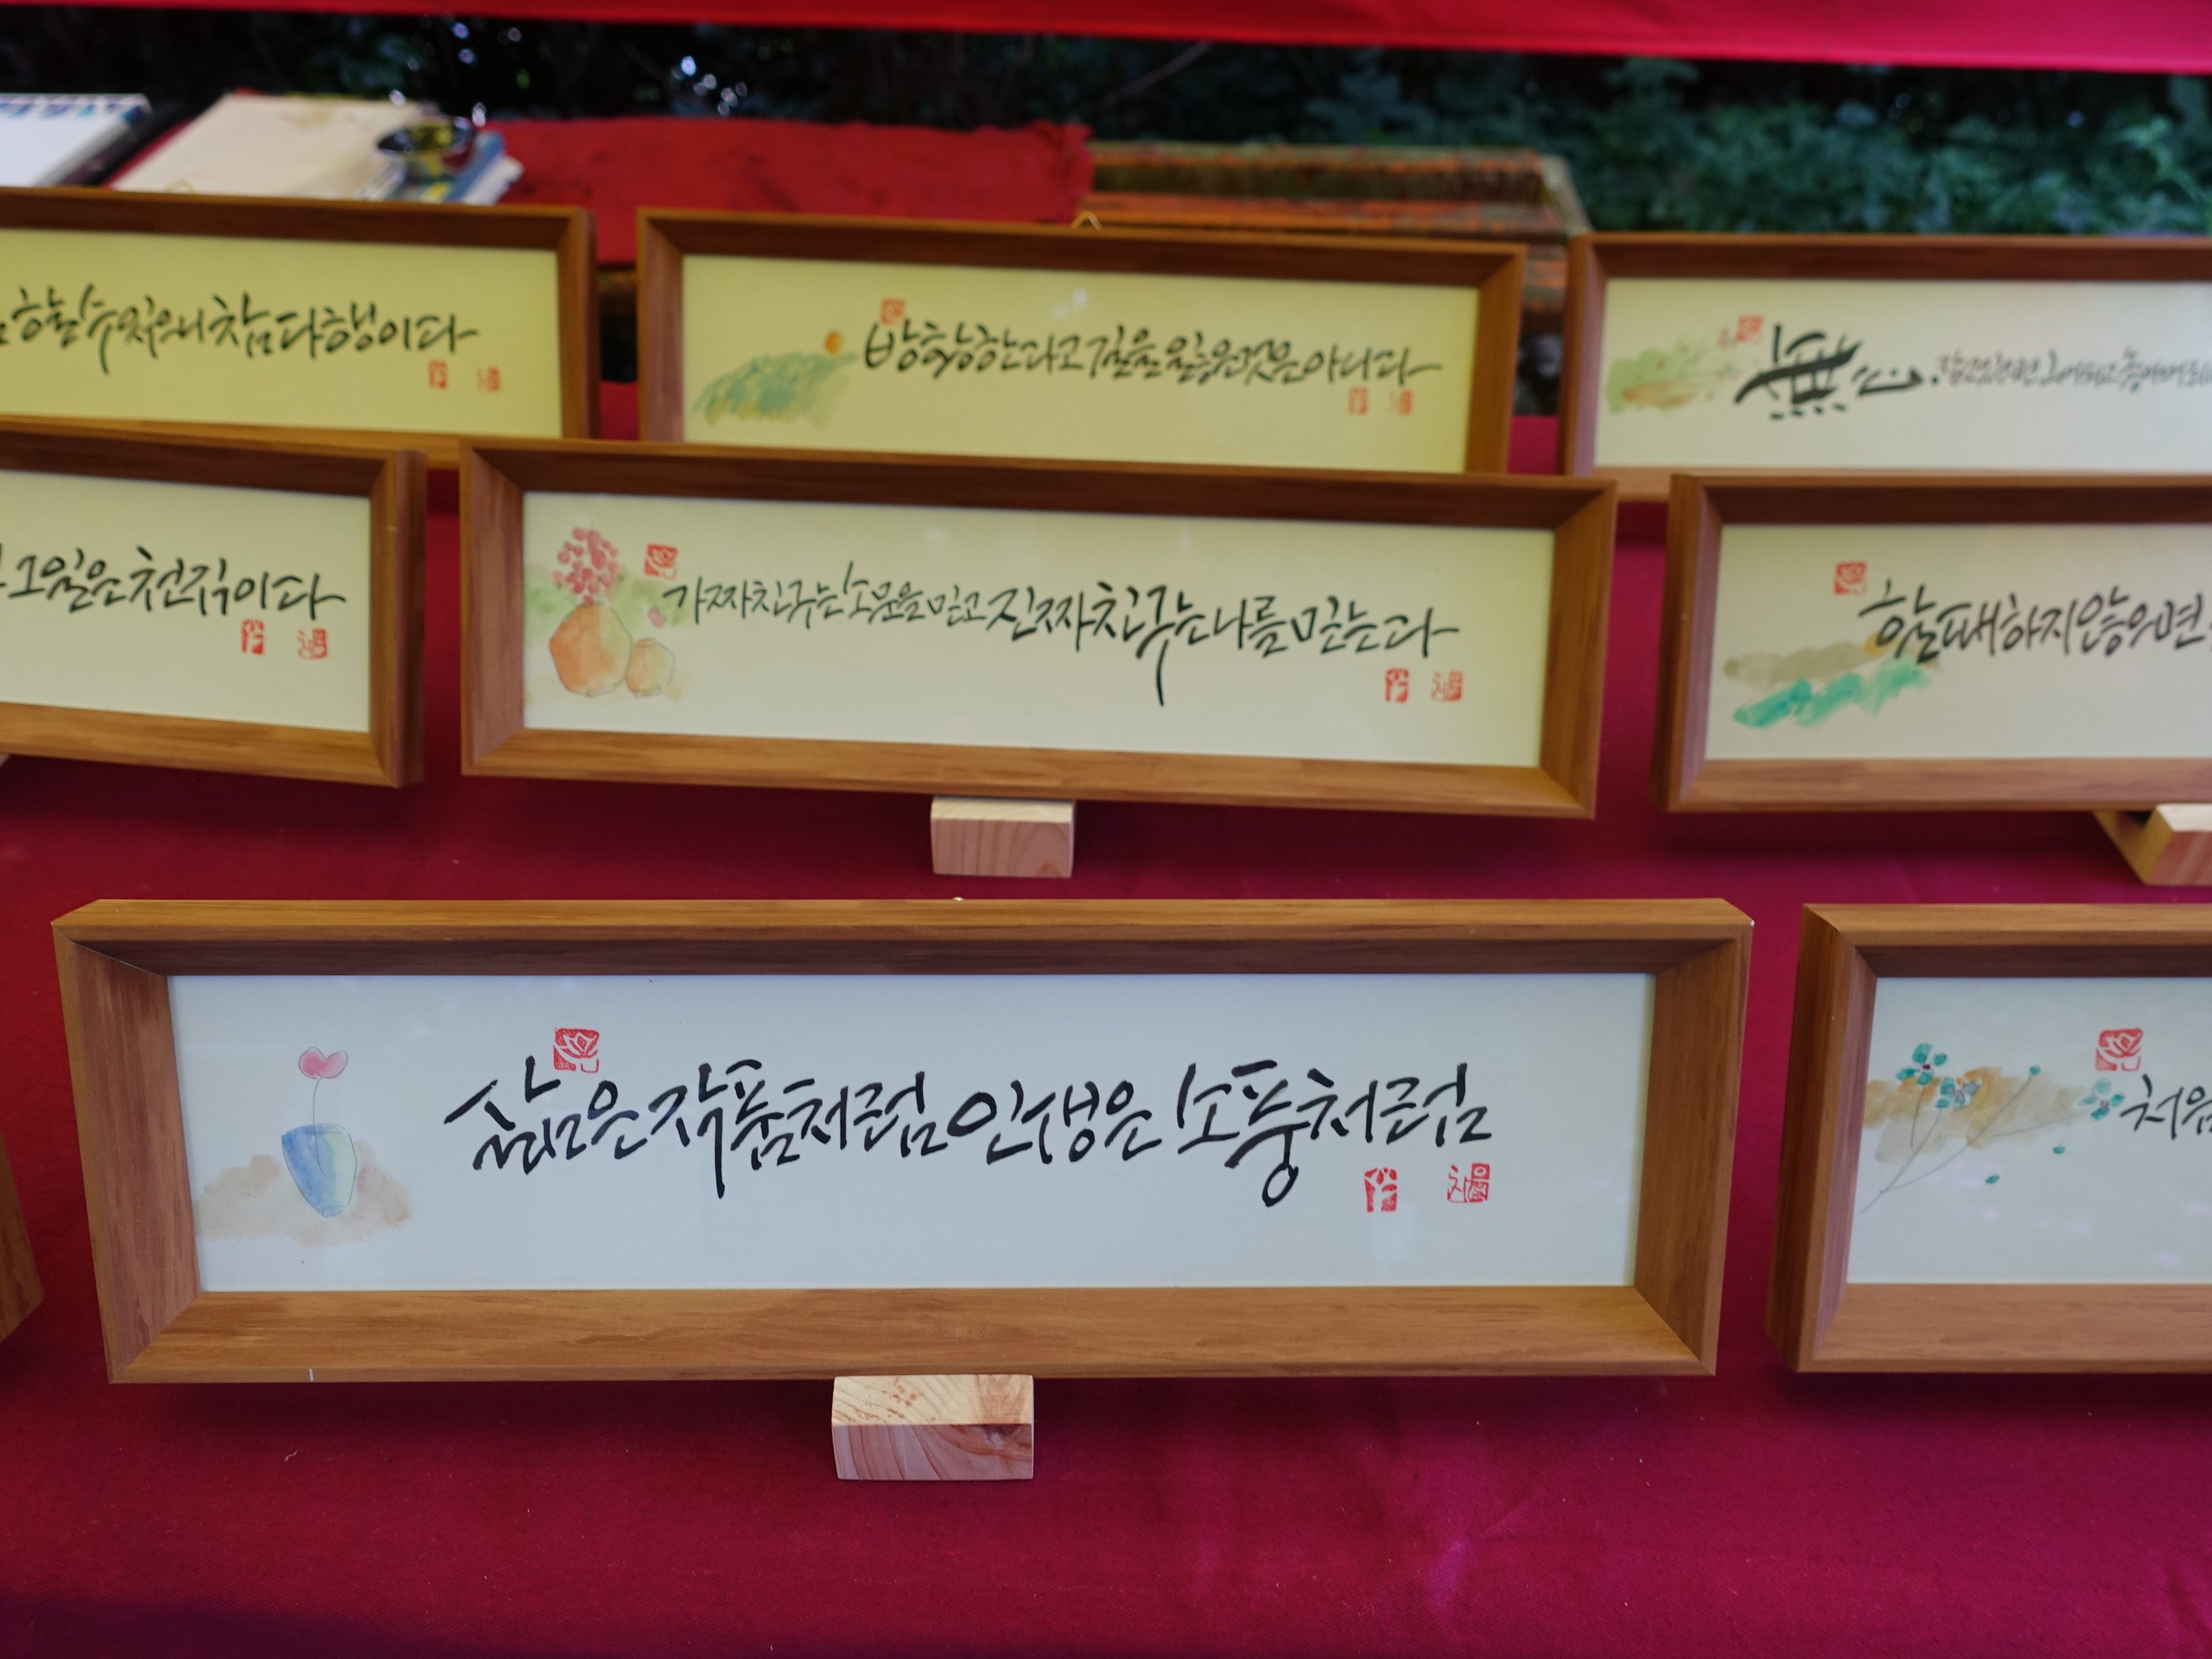 할 수 있으니 참 다행이다
방황한다고 길을 잃은 것은 아니다
無心.
그 일은 천직이다
가짜 친구는 소문을 믿고 진짜 친구는 나를 믿는다
할 때 하지 않으면
삶은 작품처럼 인생은 소풍처럼
처음